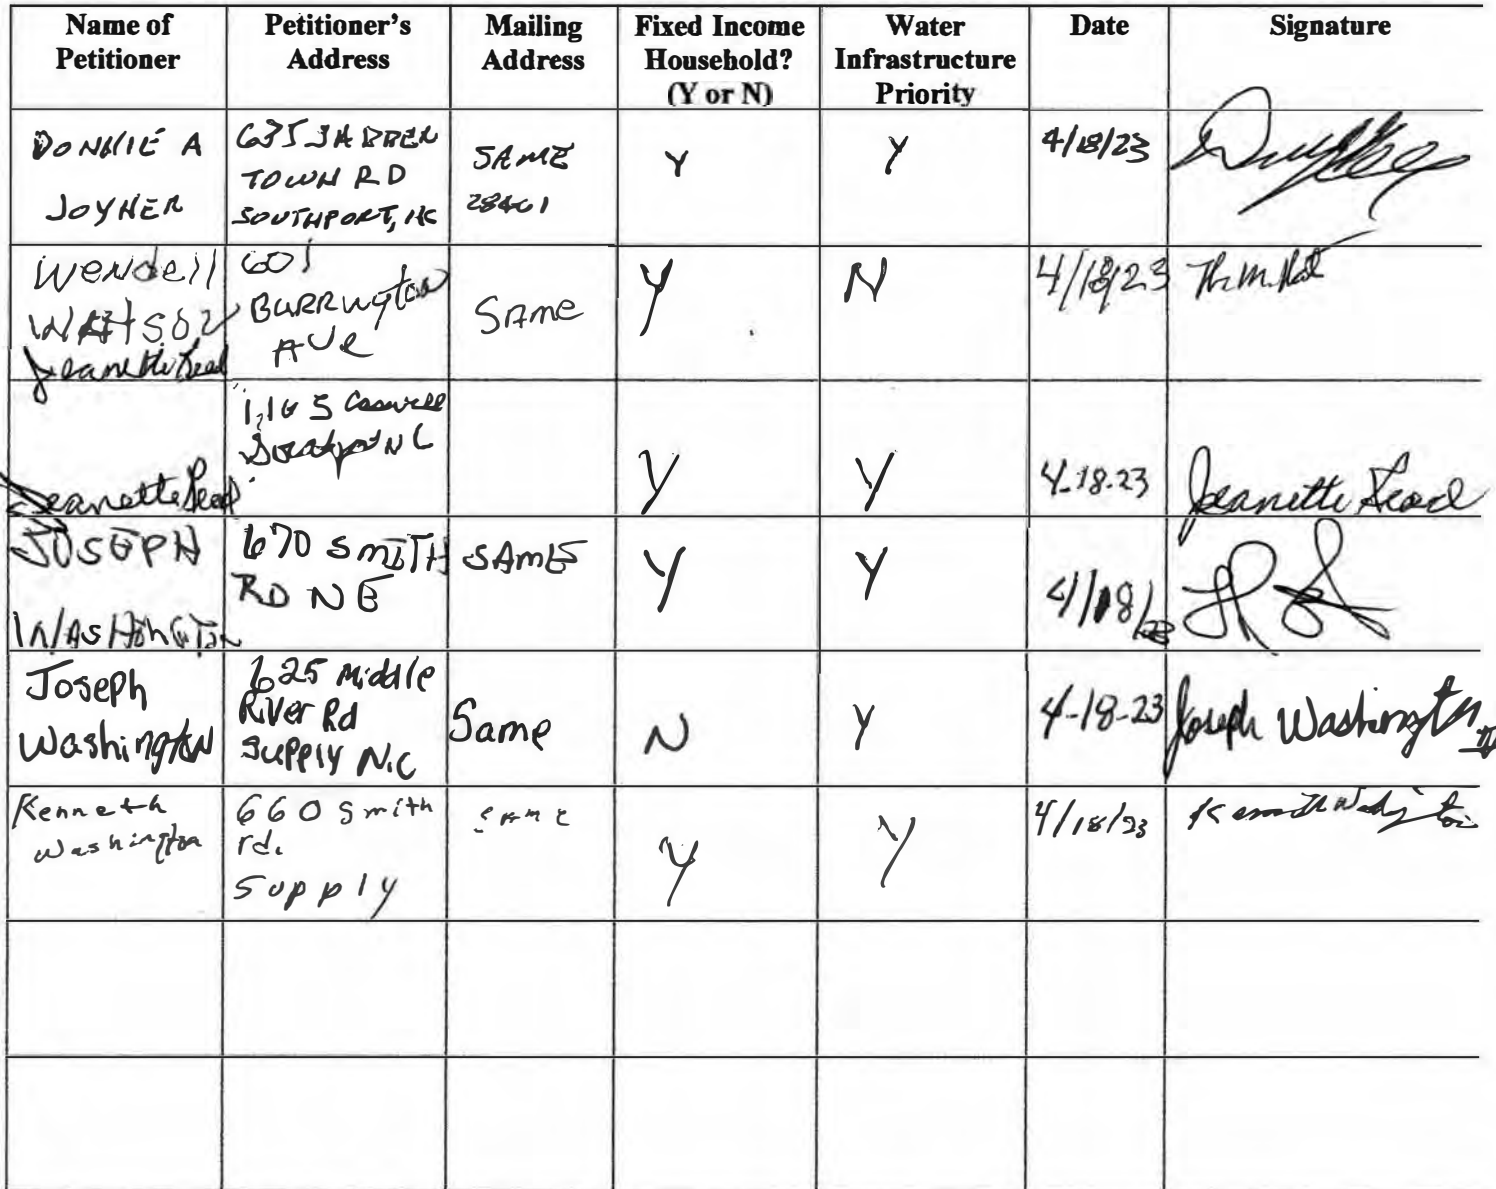 Name of Petitioner
Petitioner's Address
Mailing Address
Fixed Income Household? (Y or N)
Water Infrastructure Priority
Date
Signature
DONNIE A
JOYNER
635 JABBEN
TOWN RD
SOUTHPORT, NC
SAME
28461
Y
Y
4/18/23
Wendell
WATSON
601
BURRINGTON
AVE
SAME
Y
N
4/18/23
Jeanette
Jeanette
Caswell
NC
Y
Y
4-18-23
Jeanette
JOSEPH
WASHINGTON
670 SMITH
RD NE
SAME
Y
Y
4/18/23
Joseph
Washington
625 Middle
River Rd
Supply N.C
Same
N
Y
4-18-23
Joseph Washington
Kenneth
Washington
660 Smith
rd.
Supply
SAME
Y
Y
4/18/23
Kenneth Washington